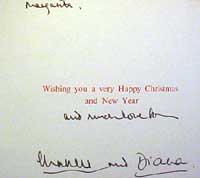 Margarita.
Wishing you a very Happy Christmas
and New Year
and much love from
Charles and Diana.